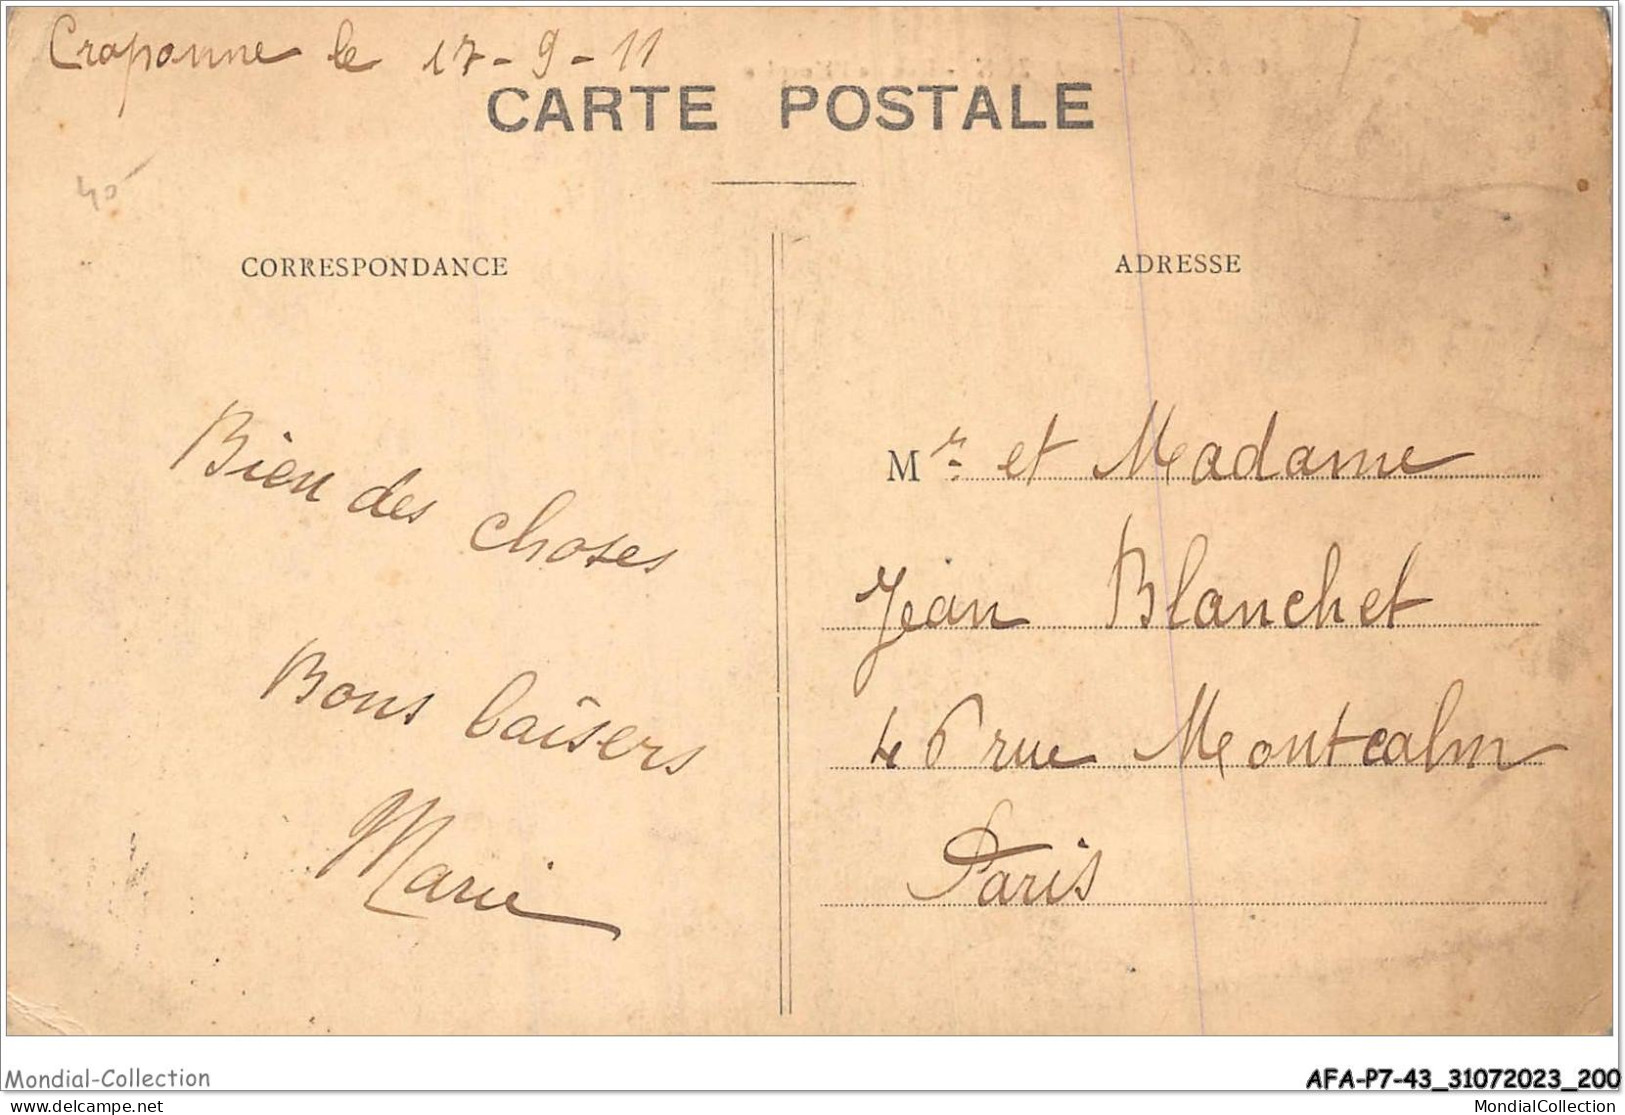 Craponne le 17-9-11
CARTE POSTALE
40
CORRESPONDANCE
Bien des choses
Bons baisers
Marie
ADRESSE
Mr. et Madame
Jean Blanchet
46 rue Montcalm
Paris
Mondial-Collection
AFA-P7-43_31072023_200
delcampe.net
MondialCollection